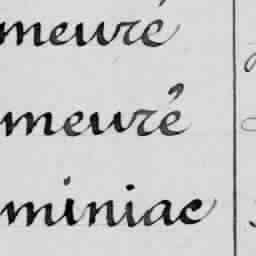 meuré
meuré
miniac